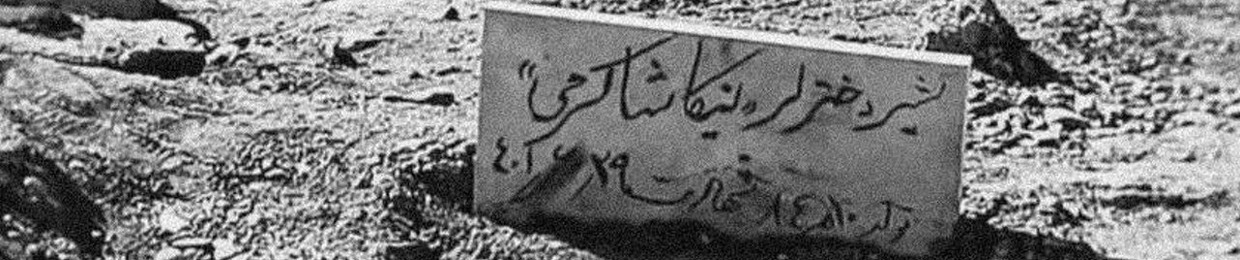 شیر دختر لر «نیکا شاکرمی»
تولد ۱۰ شهادت ۲۹ ۱۴۰۱